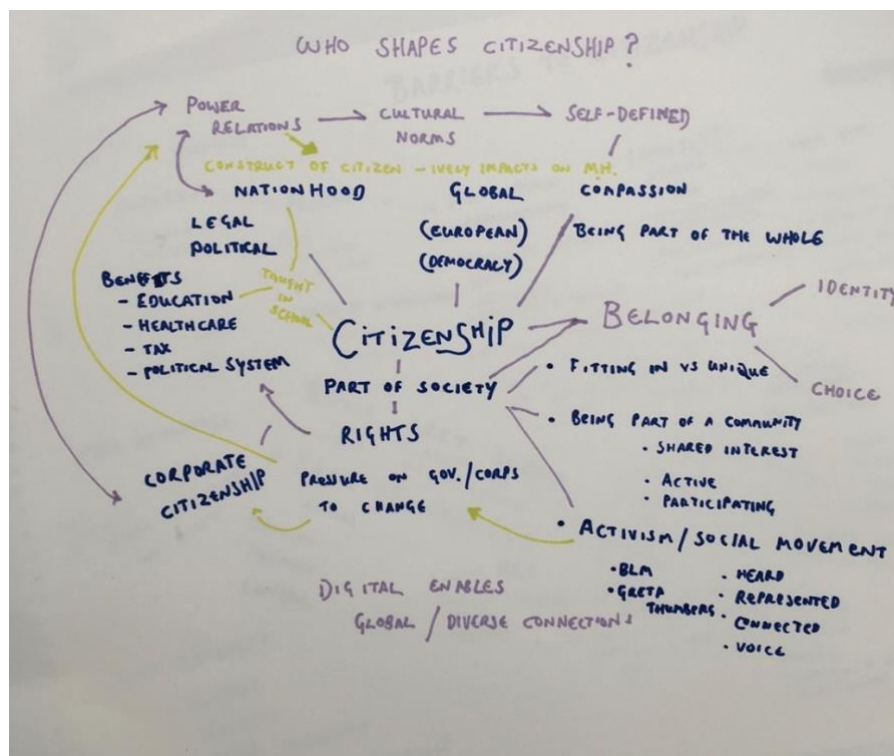 WHO SHAPES CITIZENSHIP?
POWER
RELATIONS
CULTURAL
NORMS
SELF-DEFINED
CONSTRUCT OF CITIZEN -IVELY IMPACTS ON M.H.
NATIONHOOD
LEGAL
POLITICAL
GLOBAL
(EUROPEAN)
(DEMOCRACY)
COMPASSION
BEING PART OF THE WHOLE
BENEFITS
- EDUCATION
- HEALTHCARE
- TAX
- POLITICAL SYSTEM
TAUGHT
IN
SCHOOL
CITIZENSHIP
BELONGING
IDENTITY
CHOICE
PART OF SOCIETY
RIGHTS
• FITTING IN VS UNIQUE
• BEING PART OF A COMMUNITY
• SHARED INTEREST
• ACTIVE
• PARTICIPATING
CORPORATE
CITIZENSHIP
PRESSURE ON GOV./CORPS
TO CHANGE
• ACTIVISM/SOCIAL MOVEMENT
• BLM
• GRETA
THUNBERG
• HEARD
• REPRESENTED
• CONNECTED
• VOICE
DIGITAL ENABLES
GLOBAL / DIVERSE CONNECTIONS